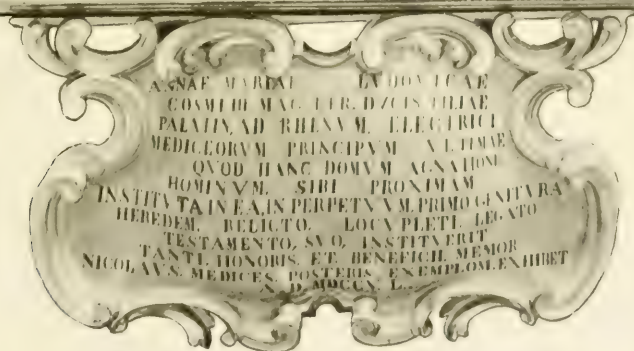 ANNAE MARIAE LVDOVICAE
COSMI III MAG. ETR. DVCIS FILIAE
PALATIN. AD RHENVM. ELECTRICI
MEDICEORVM PRINCIPVM VLTIMAE
QVOD HANC DOMVM AGNATIONE
HOMINVM. SIBI PROXIMAM
INSTITVTA IN EA, IN PERPETVVM, PRIMOGENITVRA
HEREDEM, RELICTO, LOCVPLETI, LEGATO
TESTAMENTO, SVO, INSTITVERIT
TANTI. HONORIS. ET. BENEFICII. MEMOR
NICOLAVS. MEDICES. POSTERIS. EXEMPLOM. EXHIBET
A. D. MDCCXL